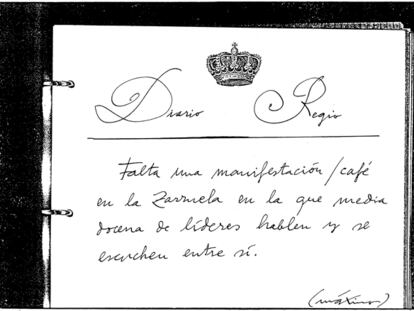 Diario Regio
Falta una manifestación/café
en la Zarzuela en la que media
docena de líderes hablen y se
escuchen entre sí.
(máximo)